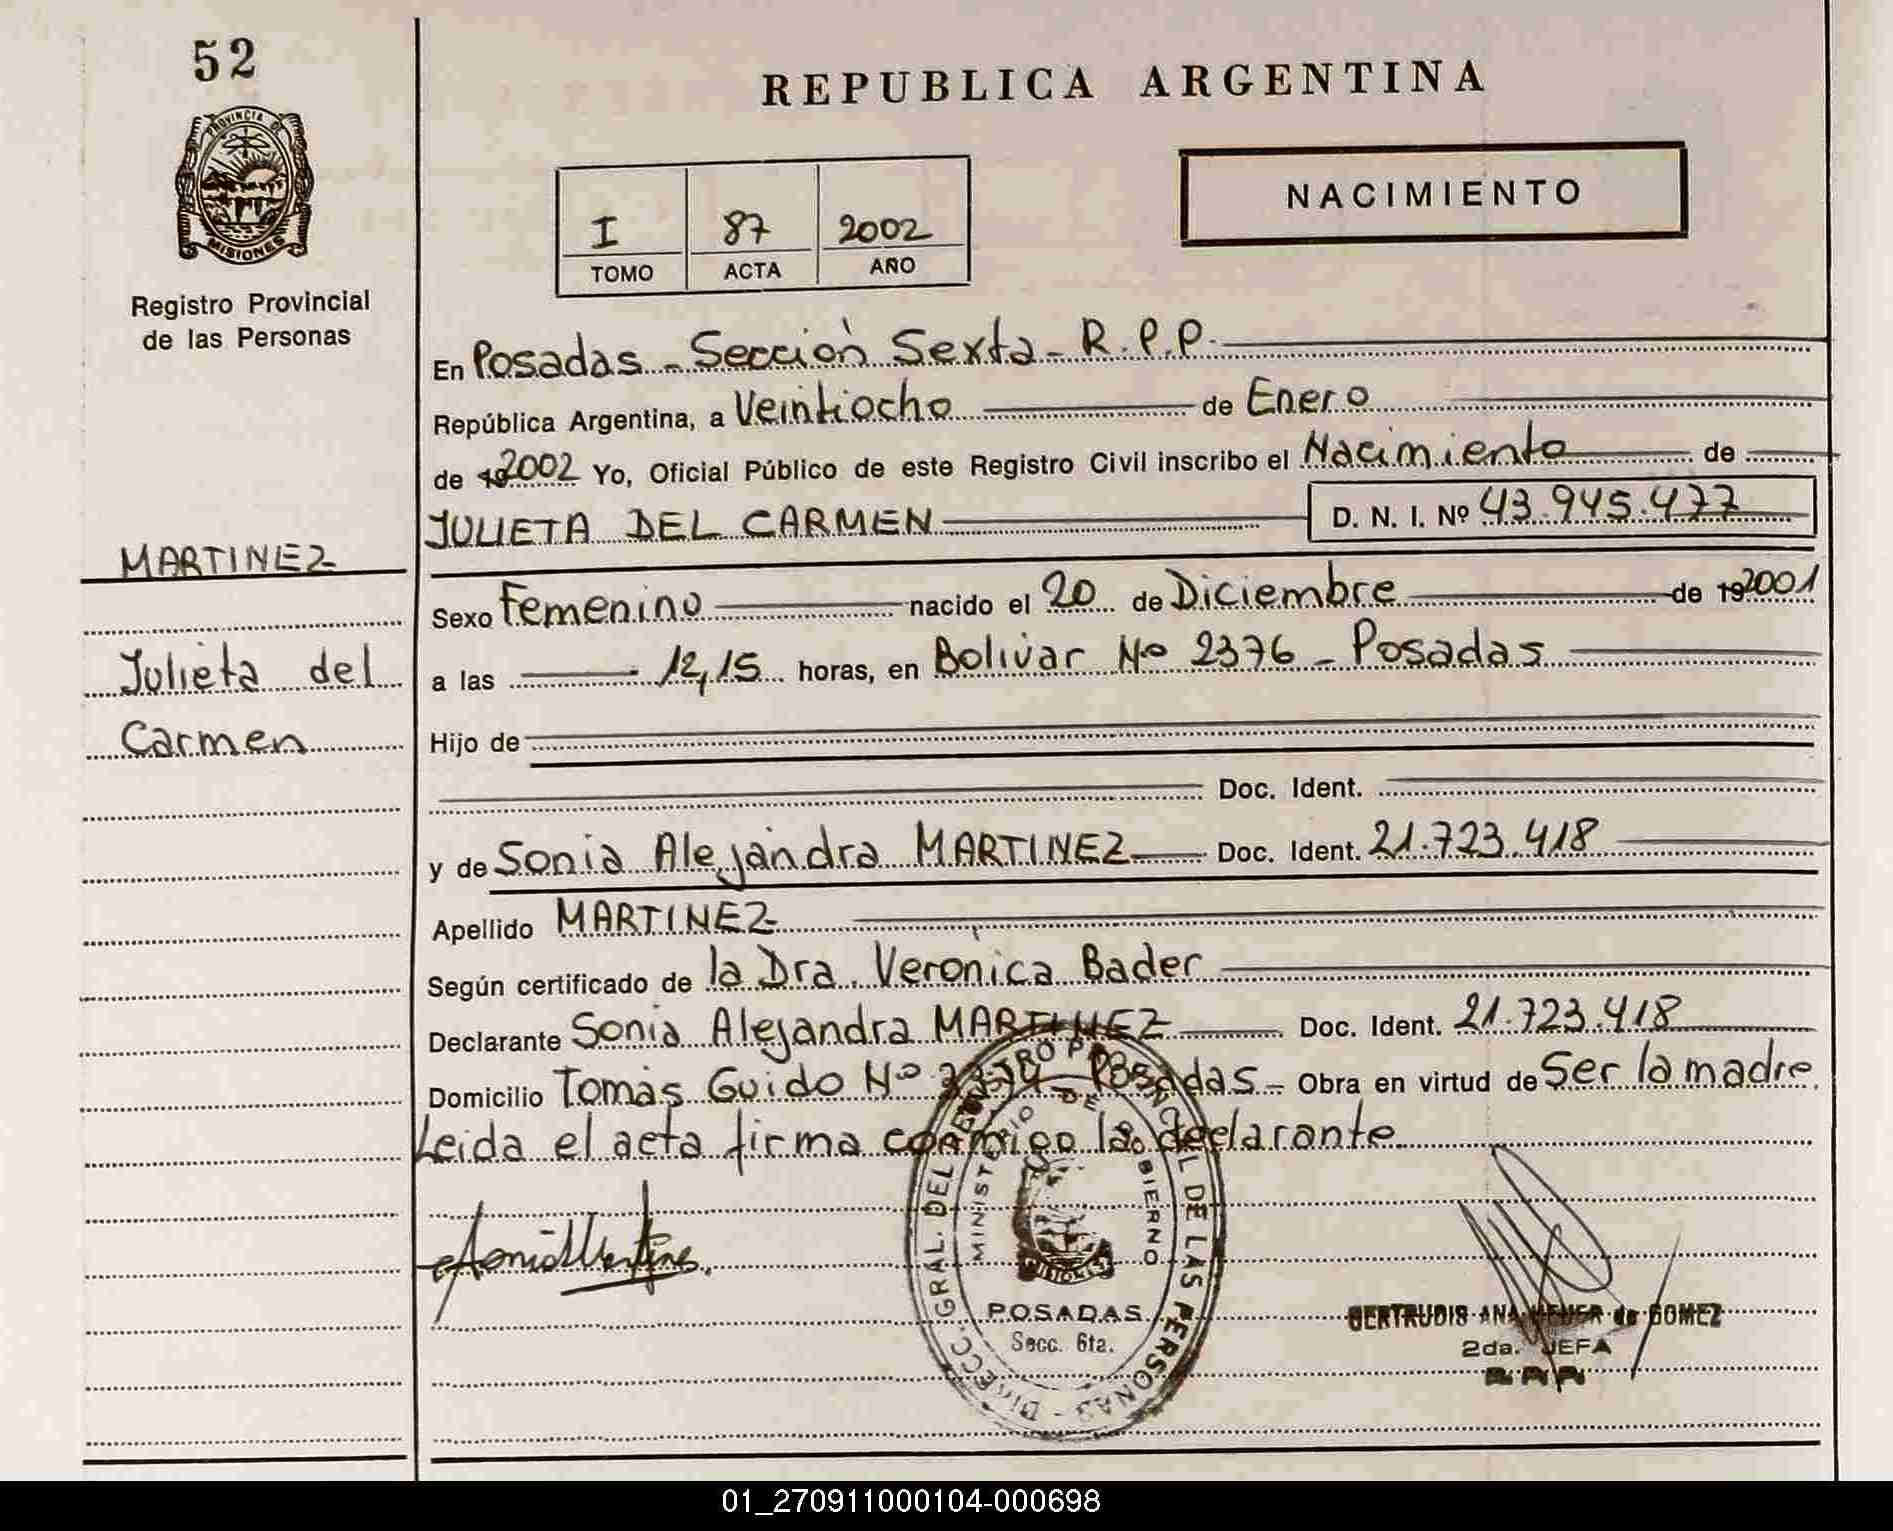 52
PROVINCIA DE
MISIONES
Registro Provincial
de las Personas
REPUBLICA ARGENTINA
NACIMIENTO
I 87 2002
TOMO ACTA AÑO
En Posadas - Sección Sexta - R.P.P.
República Argentina, a Veintiocho de Enero
de 192002 Yo, Oficial Público de este Registro Civil inscribo el Nacimiento de
JULIETA DEL CARMEN D. N. I. Nº 43.945.477
MARTINEZ
Julieta del
Carmen
Sexo Femenino nacido el 20 de Diciembre de 192001
a las 12,15 horas, en Bolivar Nº 2376 - Posadas
Hijo de
Doc. Ident.
y de Sonia Alejandra MARTINEZ Doc. Ident. 21.723.418
Apellido MARTINEZ
Según certificado de la Dra. Veronica Bader
Declarante Sonia Alejandra MARTINEZ Doc. Ident. 21.723.418
Domicilio Tomás Guido Nº Posadas - Obra en virtud de Ser la madre.
Leida el acta firma conmigo la declarante
DIRECC. GRAL. DEL REGISTRO PROVINCIAL DE LAS PERSONAS
MINISTERIO DE GOBIERNO
MISIONES
POSADAS
Secc. 6ta.
GERTRUDIS ANA de GOMEZ
2da. JEFA
R.P.P.
01_270911000104-000698